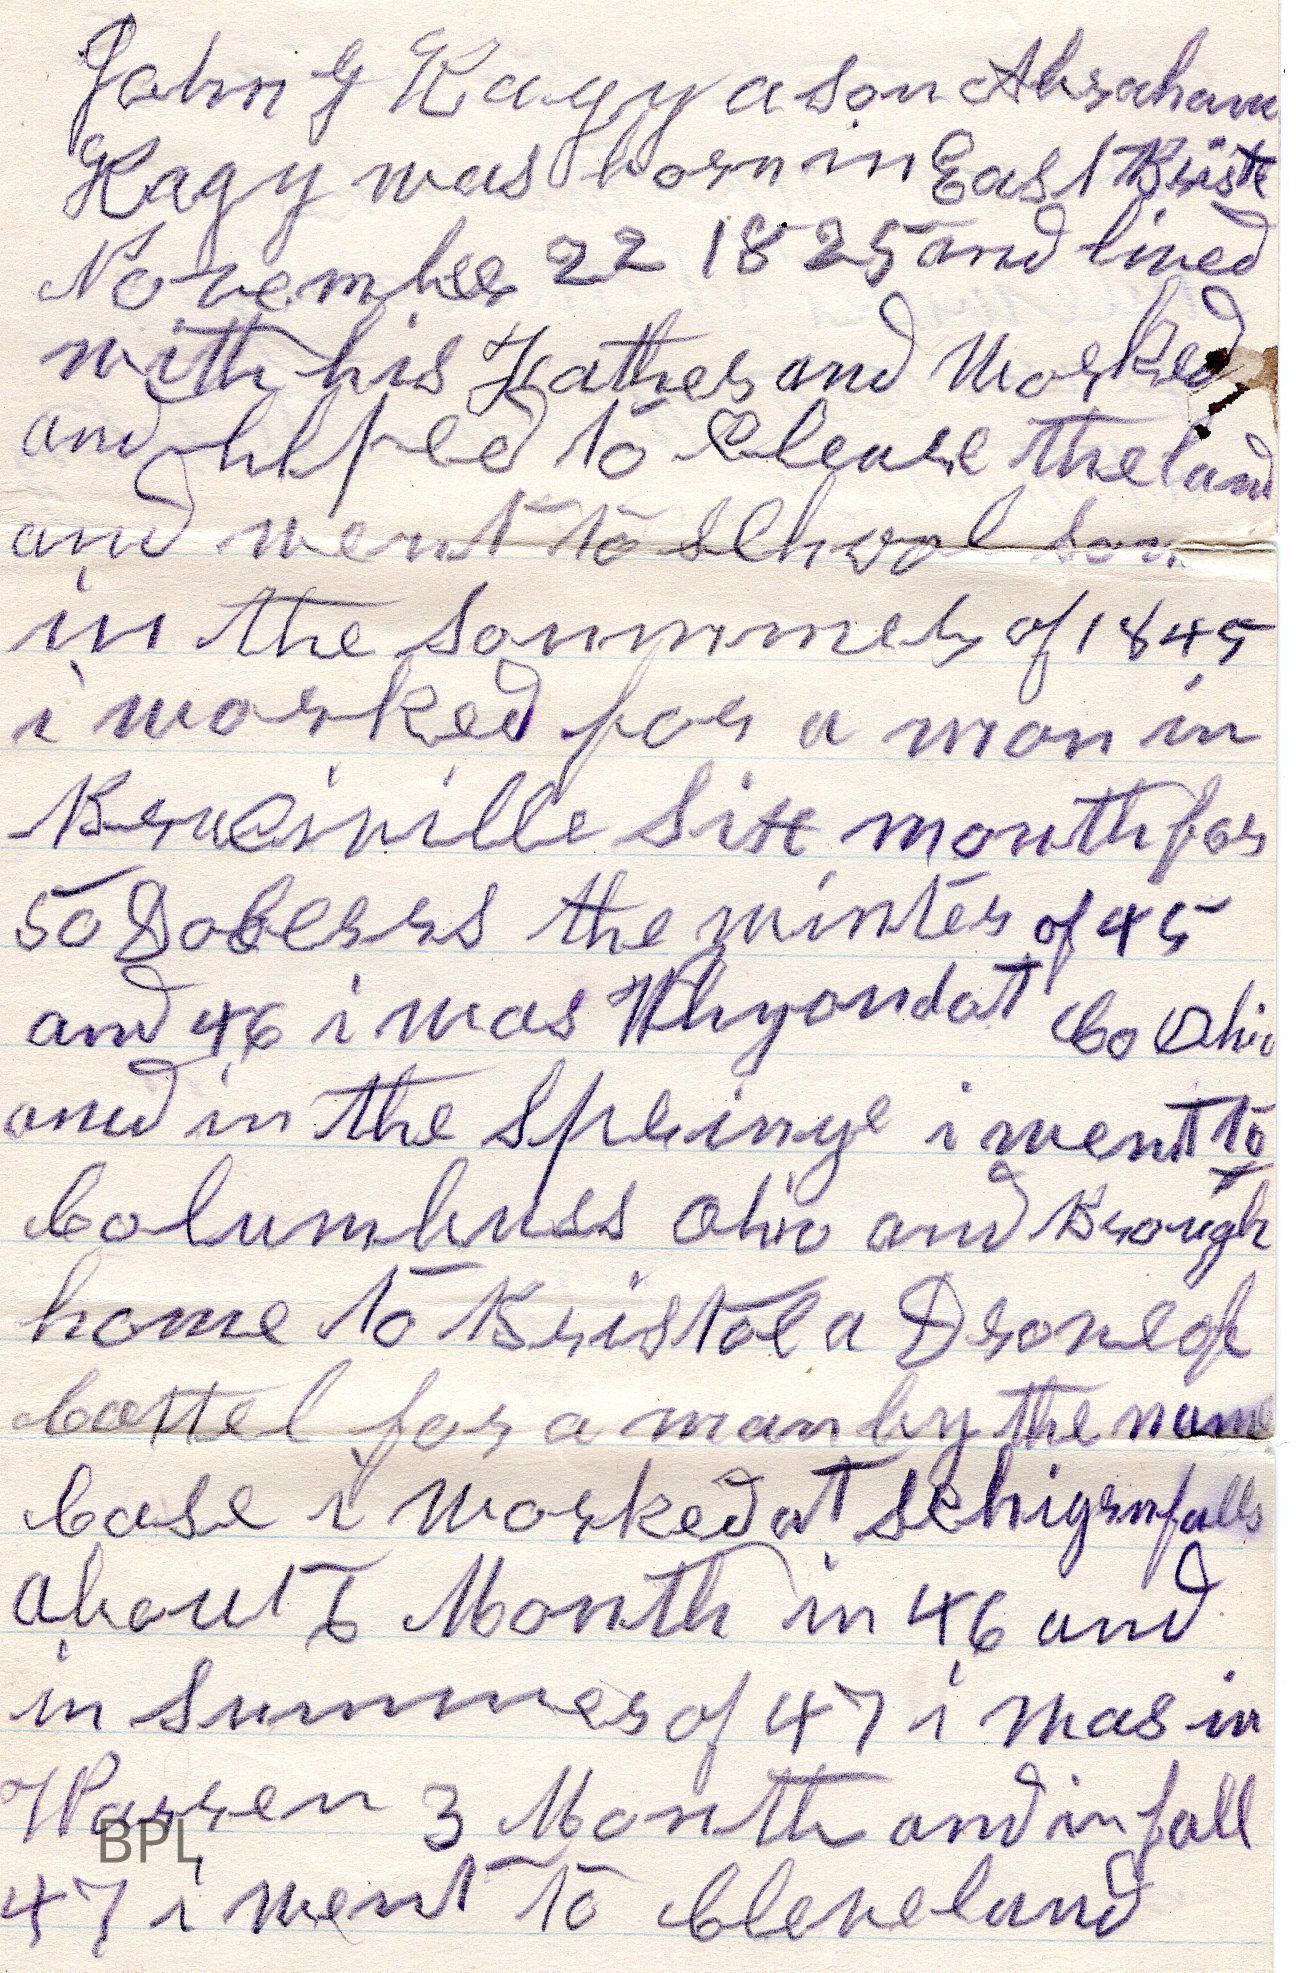 John G Kagy a son Abraham
Kagy was born in East Briste
November 22 1825 and lived
with his Father and Worked
and helped to Cleare the land
and went to school som
in the sommer of 1845
i worked for a man in
Bruceville Six month for
50 Dolerrs the winter of 45
and 46 i was Whyondat Co Ohio
and in the Springe i went to
Columbuss Ohio and Brough
home to Bristol a Drove of
Cattel for a man by the name
Case i worked at Schigrnfalls
about 6 Month in 46 and
in Summer of 47 i was in
Warren 3 Month and in fall
BPL
47 i went to Cleveland